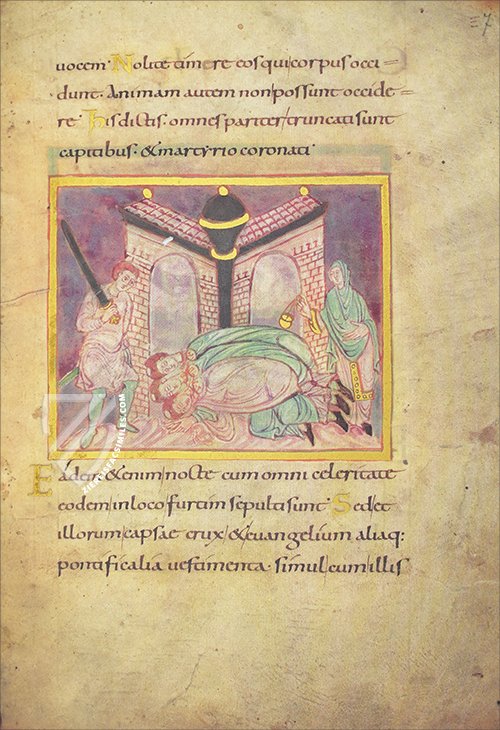 uocem· Nolite timere eos qui corpus occi=
dunt· Animam autem non possunt occide=
re· His dictis· omnes pariter truncati sunt
capitibus· & martyrio coronati·
Eadem & enim nocte cum omni celeritate
eodem in loco furtim sepulti sunt· Sed et
illorum capsae crux & euangelium aliaq:
pontificalia uestimenta· simul cum illis
FACSIMILES.COM